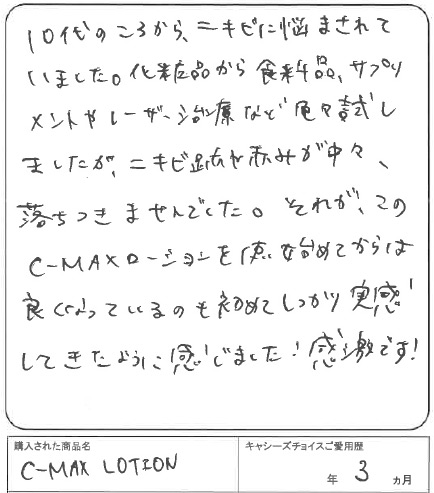 10代のころから、ニキビに悩まされて
いました。化粧品から食料品、サプリ
メントやレーザー治療など色々試し
ましたが、ニキビ跡や赤みが中々、
落ちつきませんでした。それが、この
C-MAXローションを使い始めてからは
良くなっているのも初めてしっかり実感
してきたように感じました！感激です！
購入された商品名
C-MAX LOTION
キャシーズチョイスご愛用歴
年 3 ヵ月